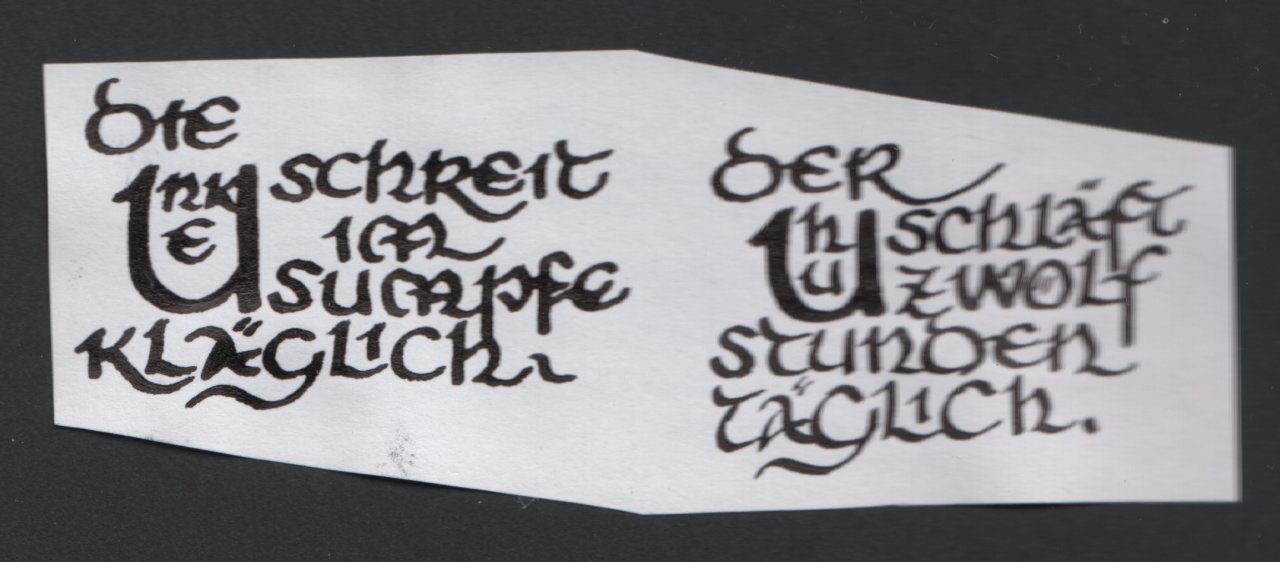 die
Unke schreit
im
sumpfe
kläglich,
der
Uhu schläft
zwolf
stunden
täglich.